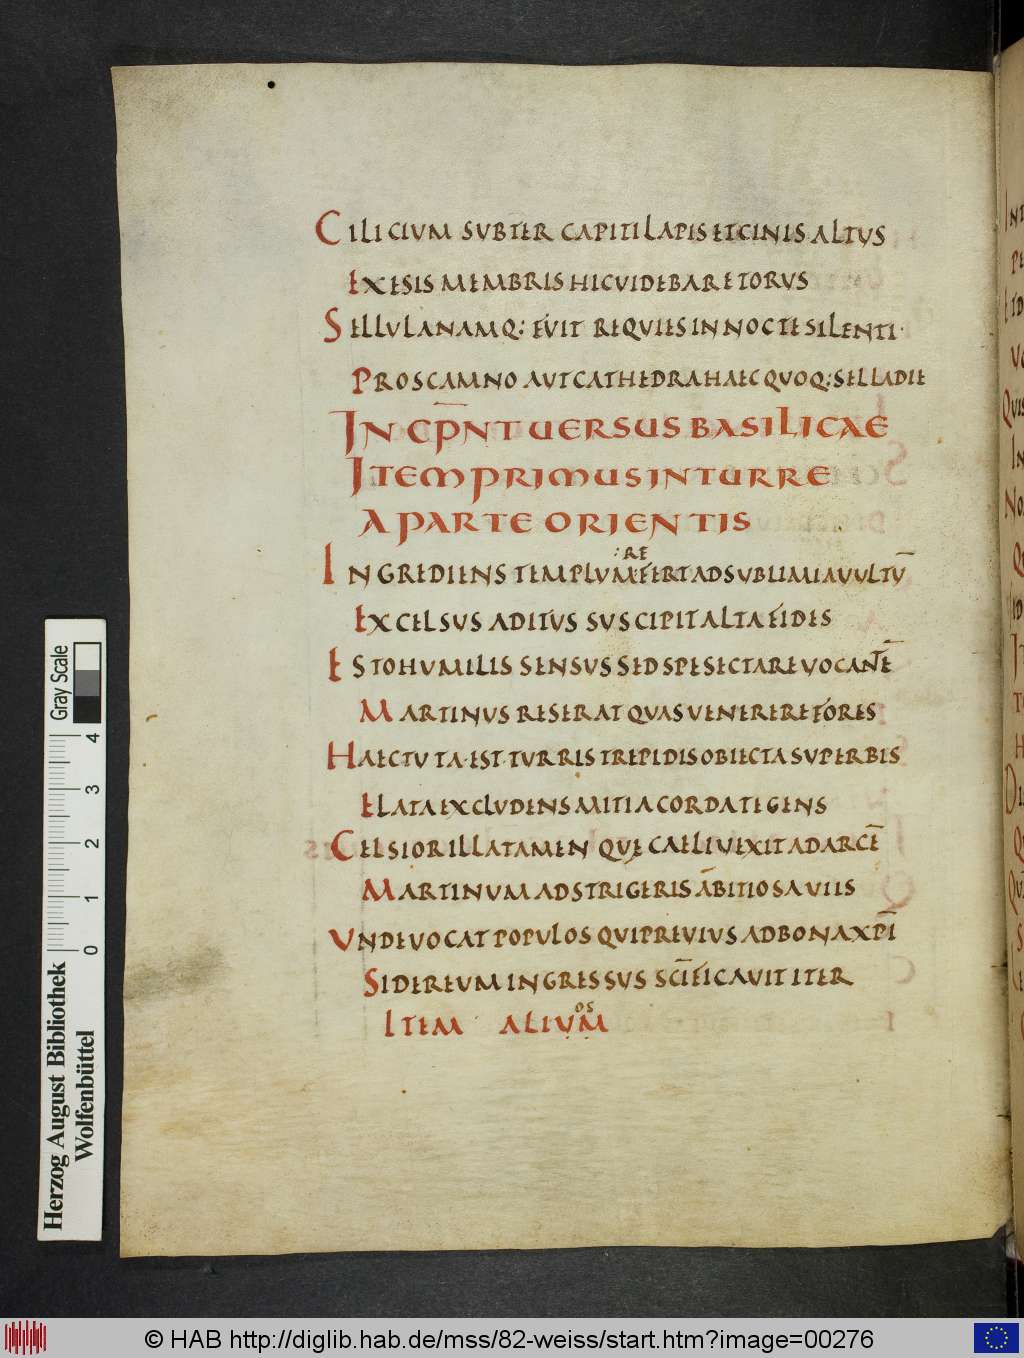 CILICIUM SUBTER CAPITI LAPIS ET CINIS ALTUS
EXESIS MEMBRIS HIC VIDEBARE TORUS
SELLULANAMQ: FVIT REQVIES IN NOCTE SILENTI
PROSCAMNO AVT CATHEDRA HAEC QVOQ: SELLA DIE
IN CP̅NT UERSUS BASILICAE
ITEM PRIMUS IN TURRE
A PARTE ORIENTIS
:RE
INGREDIENS TEMPLVM FERT AD SVBLIMIA VVLTV̅
EXCELSUS ADITUS SUSCIPIT ALTA FIDES
ESTO HVMILIS SENSVS SED SPE SECTARE VOCANTE̅
MARTINVS RESERAT QVAS VENERERE FORES
HAEC TVTA·EST TVRRIS TREPIDIS OBIECTA SVPERBIS
ELATA EXCLVDENS MITIA CORDA TEGENS
CELSIOR ILLA TAMEN QVĘ CAELI VEXIT AD ARCE̅
MARTINVM ADSTRIGERIS A̅BITIOSA VIIS
VNDE VOCAT POPVLOS QVI PREVIVS AD BONA XPI̅
SIDEREVM INGRESSVS SCI̅FICAVIT ITER
OS
ITEM ALIVM
Gray Scale
0 1 2 3 4
Herzog August Bibliothek
Wolfenbüttel
© HAB http://diglib.hab.de/mss/82-weiss/start.htm?image=00276